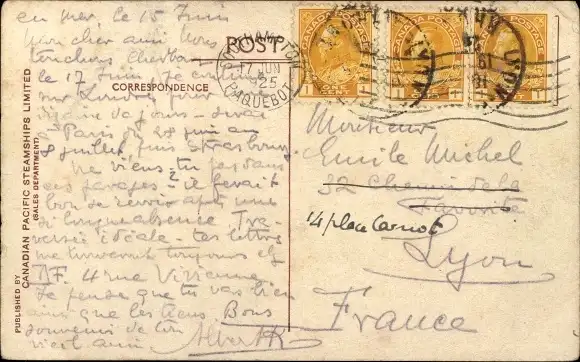 en mer, le 15 Juin
Mon cher ami Nous
touchons Cherbourg
le 17 Juin. Je continue
sur Londres pour
de jours. Serai
à Paris du 28 juin au
8 juillet, puis Strasbourg.
Ne viens-tu pas dans
ces parages? il ferait
bon se revoir après une
si longue absence Tra-
versée idéale. tes lettres
me trouveront toujours
4 rue Vivienne
Je pense que tu vas bien
ainsi que les tiens. Bons
souvenirs de ton
vieil ami. Albert
PUBLISHED BY
CANADIAN PACIFIC STEAMSHIPS LIMITED
(SALES DEPARTMENT)
POST
CORRESPONDENCE
SOUTHAMPTON
17 JUN
25
PAQUEBOT
CANADA POSTAGE
CANADA POSTAGE
CANADA POSTAGE
Monsieur
Emile Michel
32 Chemin de la
Favorite
14 place Carnot
Lyon
France